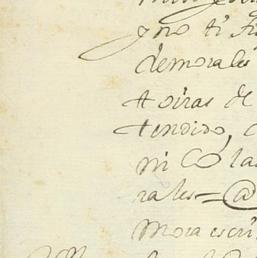 y no ti
demorales
toiras de
tendido,
ni Colas
rales=@
mora escri